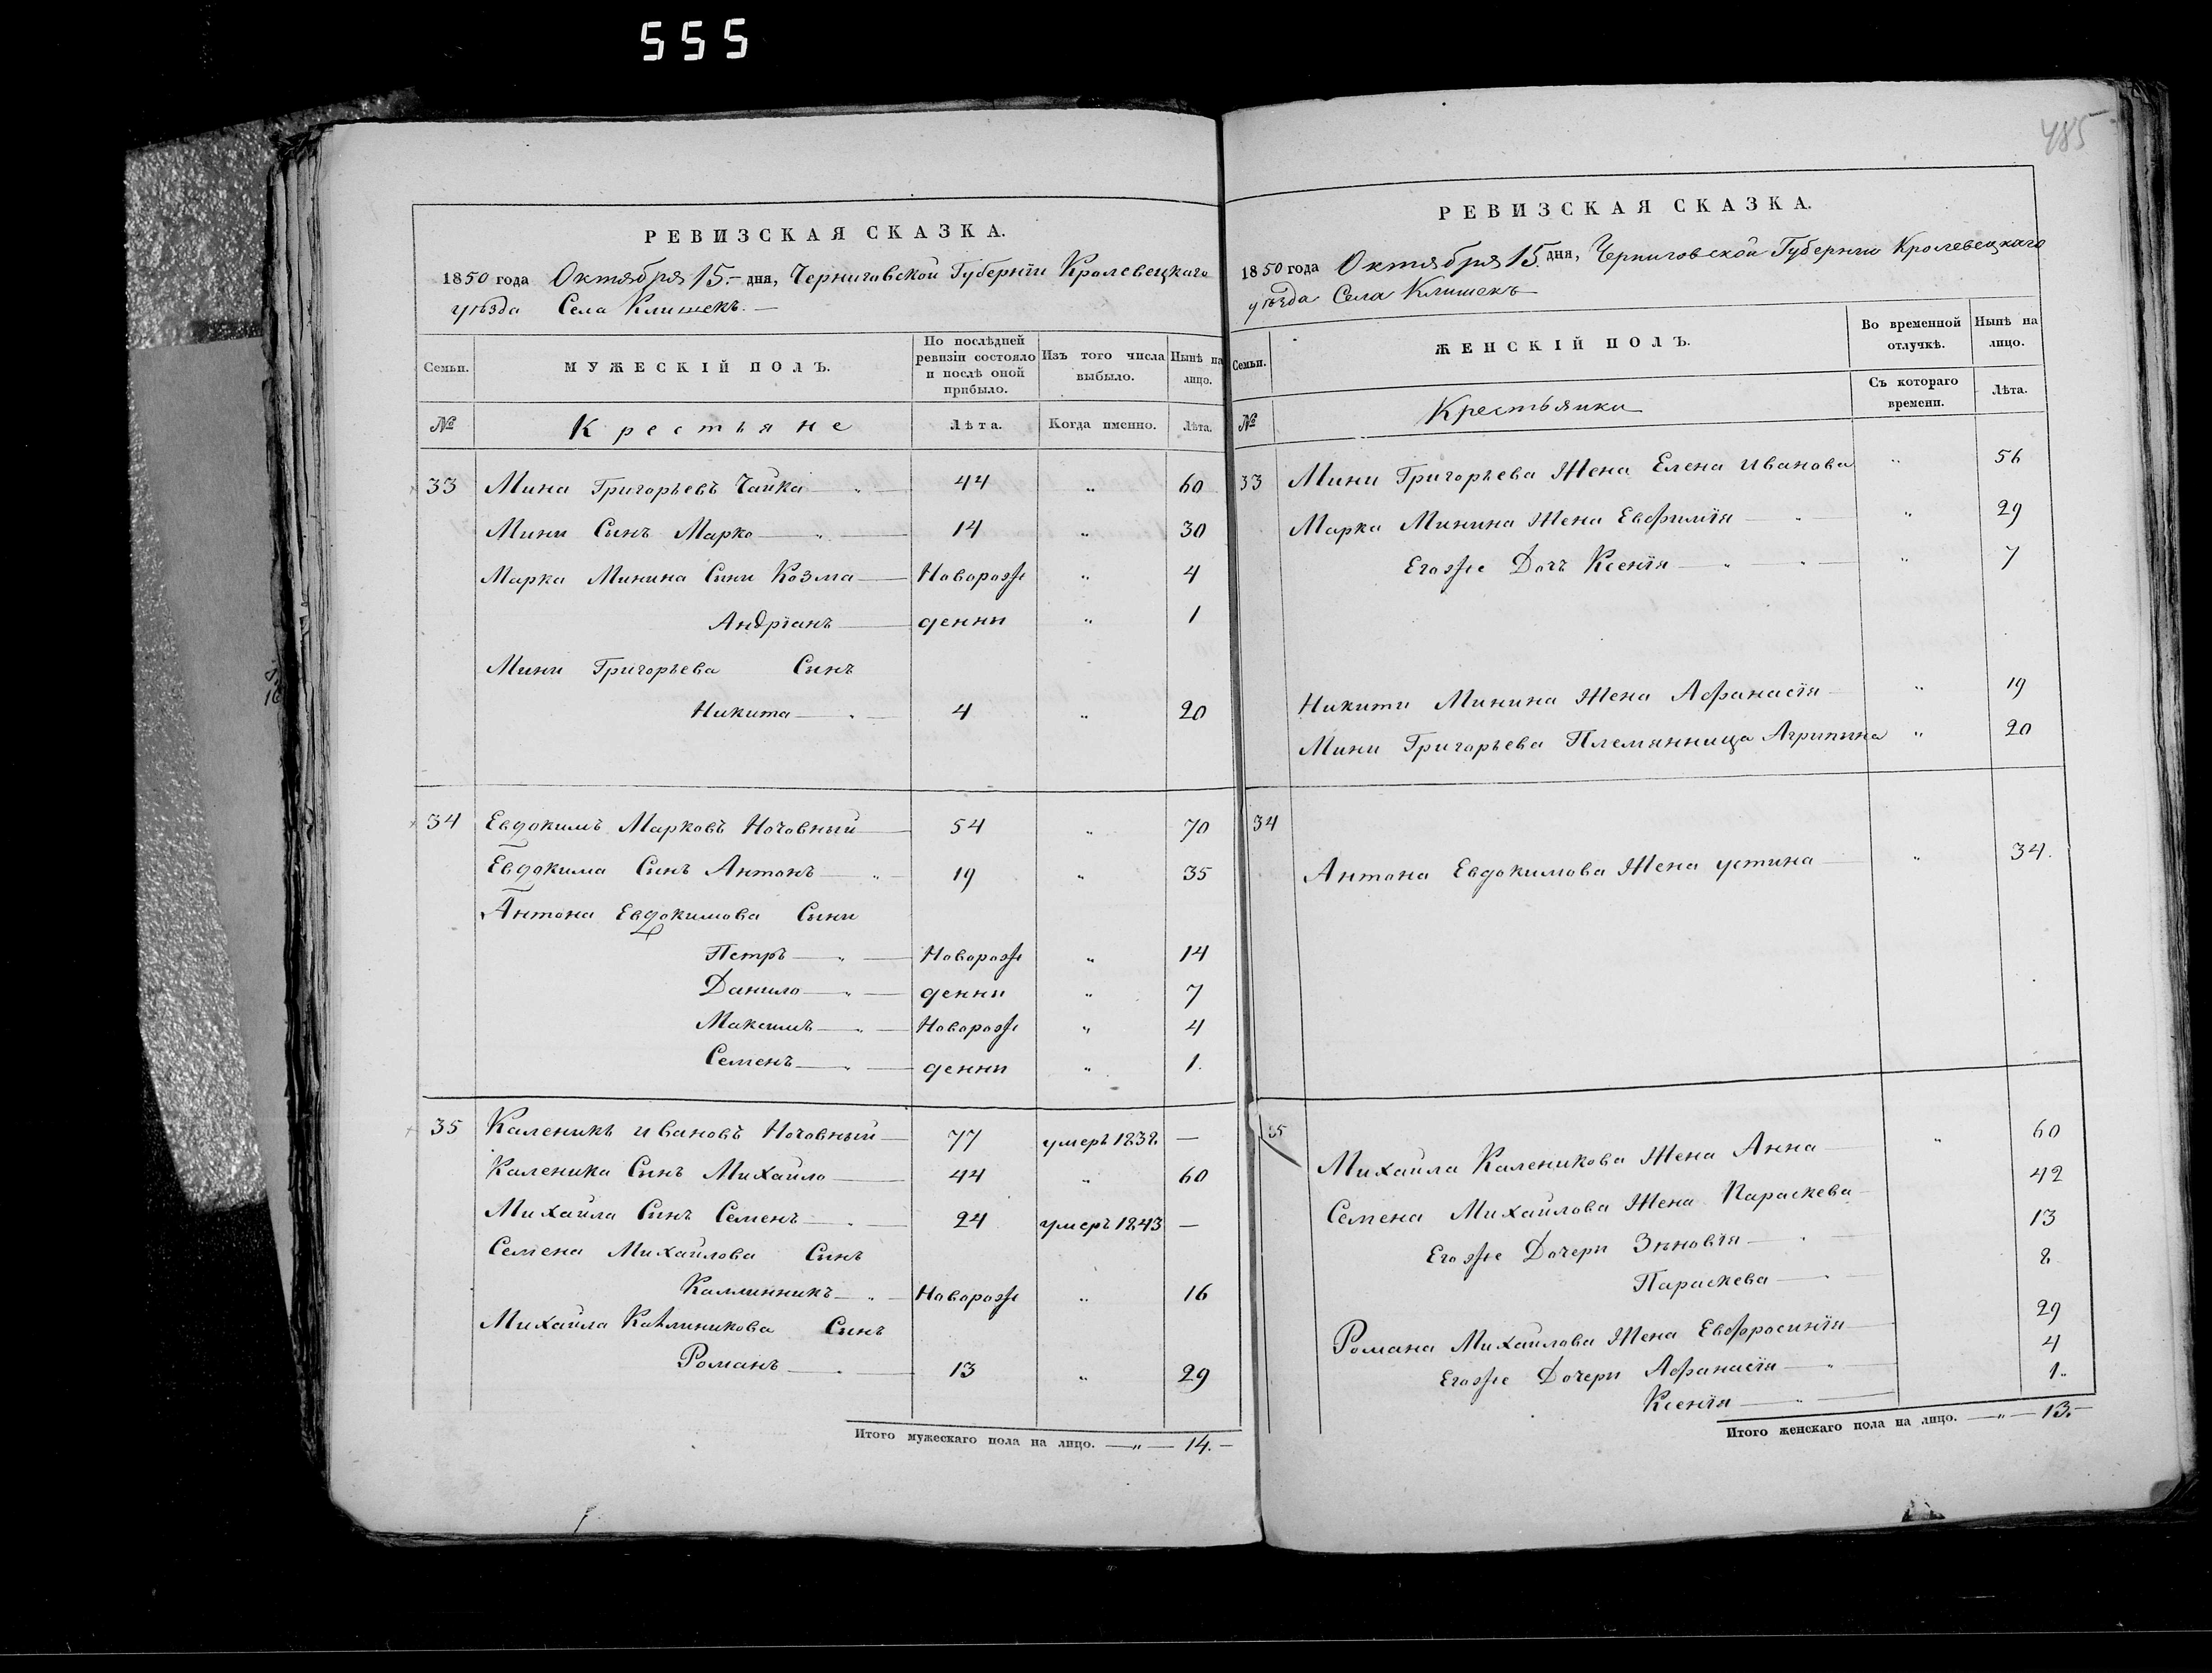 555
485
РЕВИЗСКАЯ СКАЗКА.
1850 года Октября 15.- дня, Черниговской Губерніи Кролевецкаго
уѣзда Села Клишекъ.
Семьи.
МУЖЕСКІЙ ПОЛЪ.
По послѣдней ревизіи состояло и послѣ оной прибыло.
Изъ того числа выбыло.
Нынѣ на лицо.
№
Крестьяне
Лѣта.
Когда именно.
Лѣта.
33 Мина Григорьевъ Чайка 44 " 60
Мини Сынъ Марко 14 " 30
Марка Минина Сини Козма Новорож 4
Андріанъ денни " 1
Мини Григорьева Сынъ
Никита 4 " 20
34 Евдокимъ Марковъ Ночовный 54 " 70
Евдокима Сынъ Антонъ 19 " 35
Антона Евдокимова Сыни
Петръ Новорож " 14
Данило денни " 7
Максимъ Новорож " 4
Семенъ денни " 1.
35 Каленикъ Ивановъ Ночовный 77 умеръ 1838 —
Каленика Сынъ Михайло 44 " 60
Михайла Сынъ Семенъ 24 умеръ 1843 —
Семена Михайлова Сынъ
Каллинникъ Новорож " 16
Михайла Каллиникова Сынъ
Романъ 13 " 29
Итого мужескаго пола на лицо. — " — 14.-
РЕВИЗСКАЯ СКАЗКА.
1850 года Октября 15. дня, Черниговской Губерніи Кролевецкаго
уѣзда Села Клишекъ
Семьи.
ЖЕНСКІЙ ПОЛЪ.
Во временной отлучкѣ.
Нынѣ на лицо.
Съ котораго времени.
Лѣта.
№
Крестьянки
33 Мини Григорьева Жена Елена Иванова " 56
Марка Минина Жена Евфимія " 29
Егоже Дочъ Ксенія " 7
Никити Минина Жена Афанасія " 19
Мини Григорьева Племянница Агрипина " 20
34
Антона Евдокимова Жена Устина " 34.
35
Михайла Каленикова Жена Анна " 60
Семена Михайлова Жена Параскева 42
Егоже Дочери Зѣновія 13
Параскева 8
Романа Михайлова Жена Евфросинія 29
Егоже Дочери Афанасія 4
Ксенія 1.
Итого женскаго пола на лицо. — " — 13.-